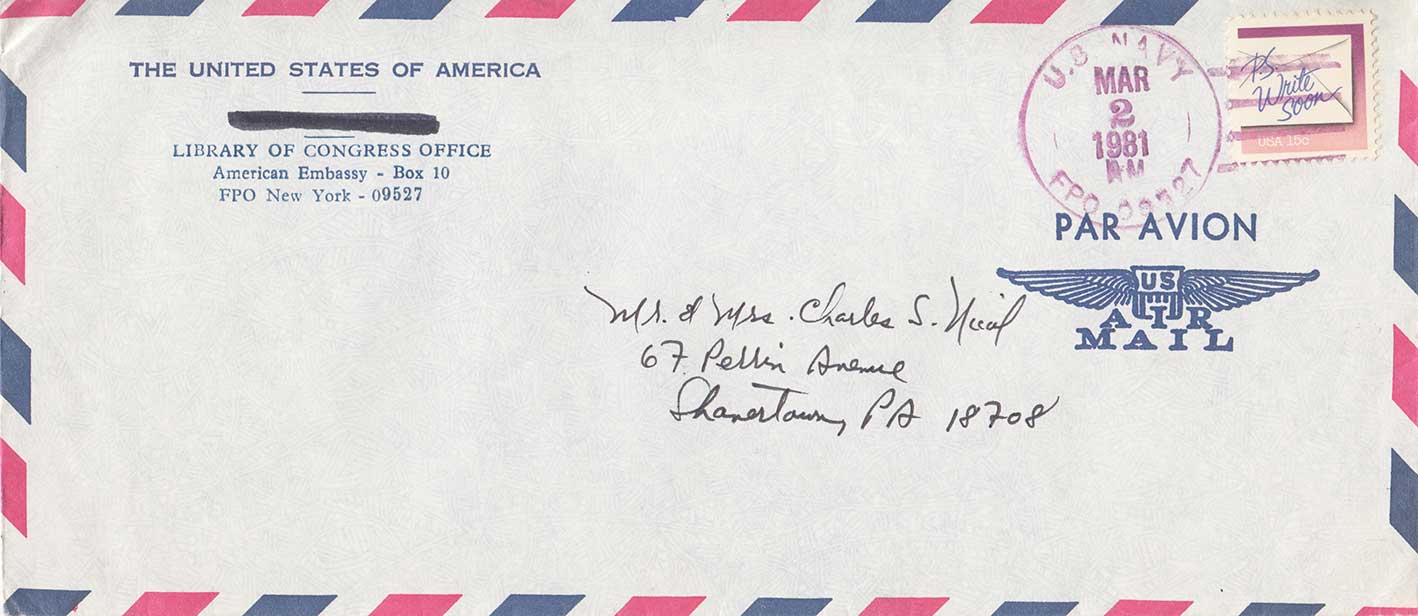 THE UNITED STATES OF AMERICA
LIBRARY OF CONGRESS OFFICE
American Embassy - Box 10
FPO New York - 09527
U.S. NAVY
MAR
2
1981
AM
FPO 09527
P.S.
Write
Soon
USA 15c
PAR AVION
US
AIR
MAIL
Mr. & Mrs. Charles S. Nicol
67 Perrin Avenue
Shavertown, PA 18708